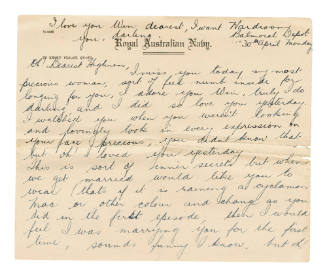 I love you Wun dearest, I want
you, darling
Wardroom
Balmoral Depot
30th April Monday
Royal Australian Navy.
Oh Dearest
I miss you today my most
precious woman, sort of feel numb inside for
longing for you, I adore you Wun, truly I do
darling and I did so love you yesterday
I watched you when you weren't looking
and fervently took in every expression on
your face precious, you didn't know that
but oh I loved you yesterday.
This is sort of inner secrets but when
we get married would like you to
wear (that's if it is raining a cyclamen
mac or other colour and change as you
did in the first episode, then I would
feel I was marrying you for the first
time, sounds funny I know, but oh